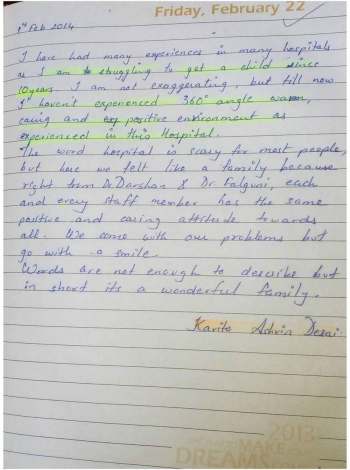 Friday, February 22
1st Feb 2014
I have had many experiences in many hospitals
as I am to struggling to get a child since
10years. I am not exaggerating, but till now
I haven't experienced 360° angle warm,
caring and positive environment as
experienced in this Hospital.
The word hospital is scary for most people,
but here we felt like a family because
right from Dr. Darshan & Dr. Falguni, each
and every staff member has the same
positive and caring attitude towards
all. We come with our problems but
go with a smile.
Words are not enough to describe but
in short its a wonderful family.
Kavita Desai
2013
MAKE
DREAMS